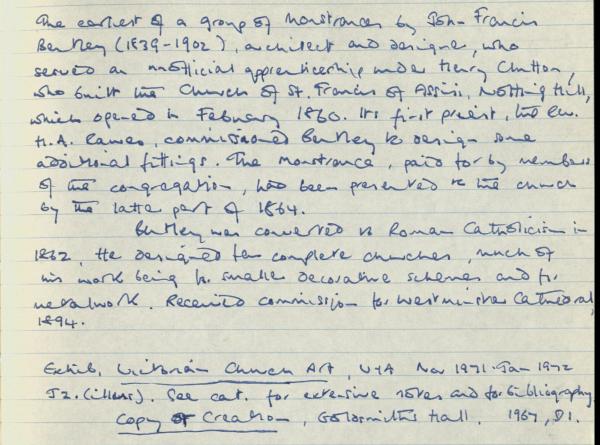 The earliest of a group of monstrances by John Francis
Bentley (1839-1902), architect and designer, who
served an unofficial apprenticeship under Henry Clutton,
who built the Church of St. Francis of Assisi, Notting Hill,
which opened in February 1860. Its first priest, the Rev.
H.A. Rawes, commissioned Bentley to design some
additional fittings. The monstrance, paid for by members
of the congregation, had been presented to the church
by the latter part of 1864.
Bentley was converted to Roman Catholicism in
1862. He designed few complete churches, much of
his work being for smaller decorative schemes and for
metalwork. Received commission for Westminster Cathedral,
1894.
Exhib. Victorian Church Art, V&A Nov 1971-Jan 1972
J2. (illus). See cat. for extensive notes and for bibliography
Copy or Creation, Goldsmiths Hall. 1967, D1.